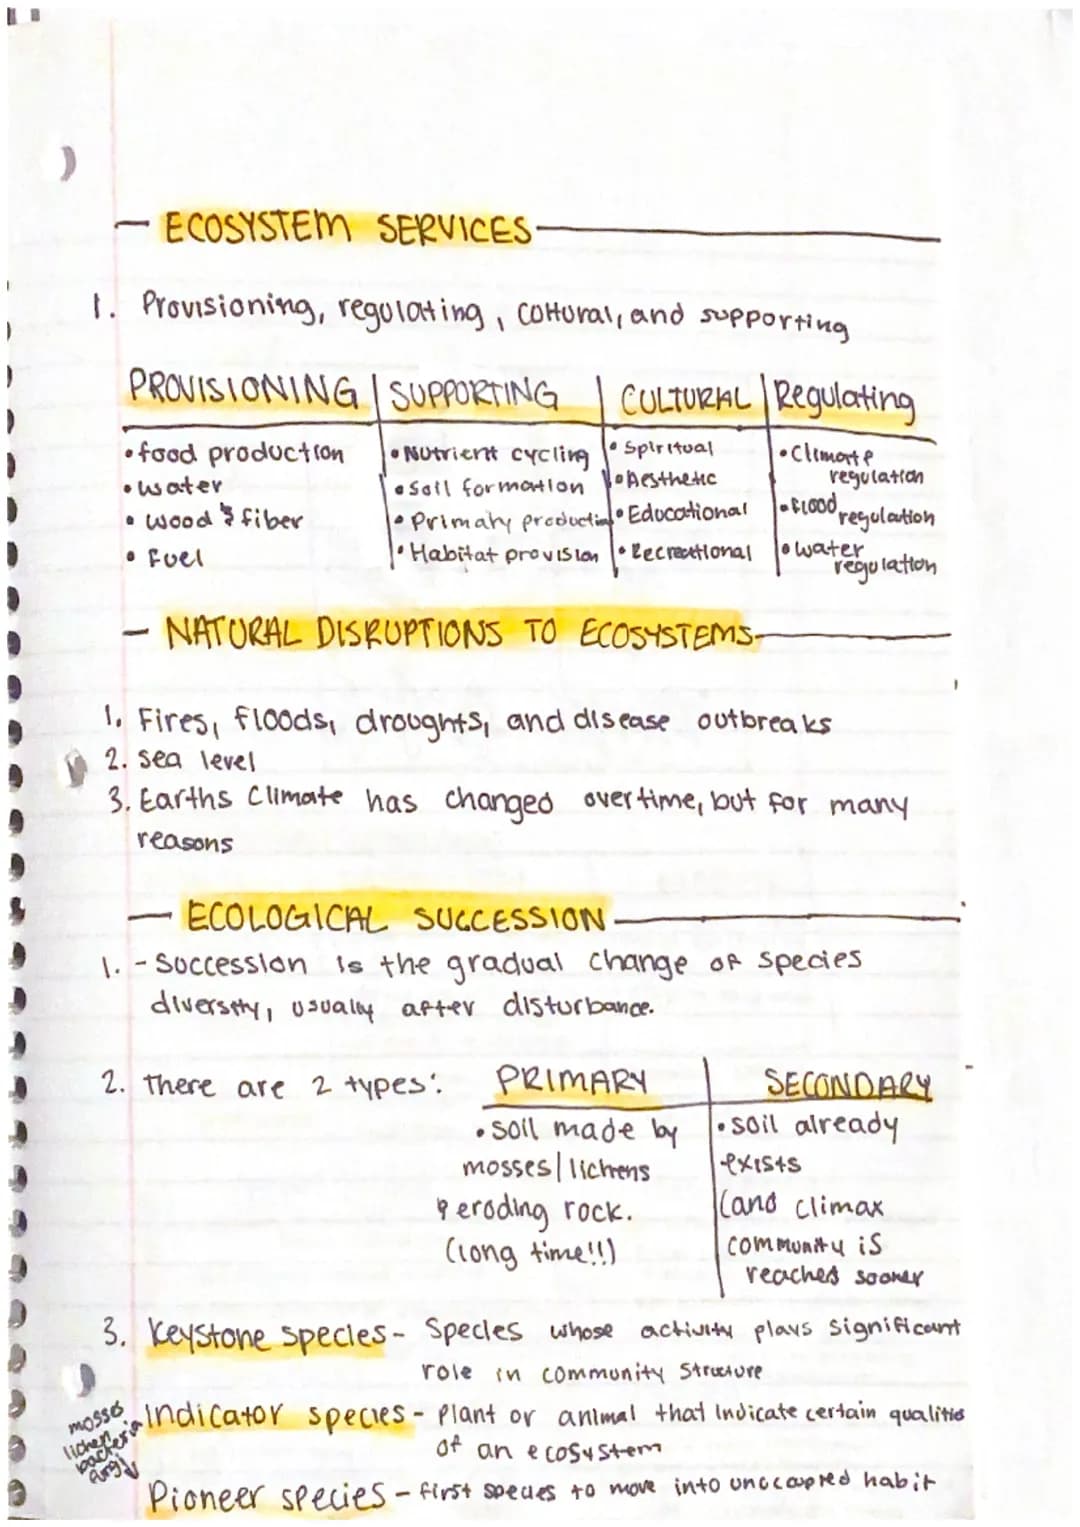 - ECOSYSTEM SERVICES
1. Provisioning, regulating, cultural, and supporting
PROVISIONING | SUPPORTING | CULTURAL | Regulating
• food production
• water
• wood & fiber
• Fuel
• Nutrient cycling
• Soil formation
• Primary production
• Habitat provision
• Spiritual
• Aesthetic
• Educational
• Recreational
• Climate
regulation
• flood
regulation
• water
regulation
- NATURAL DISRUPTIONS TO ECOSYSTEMS-
1. Fires, floods, droughts, and disease outbreaks
2. sea level
3. Earths Climate has changed overtime, but for many
reasons
- ECOLOGICAL SUCCESSION
1. - Succession is the gradual change of species
diversity, usually after disturbance.
2. There are 2 types:
PRIMARY
• soil made by
mosses/lichens
& eroding rock.
(long time!!)
SECONDARY
• soil already
exists
(and climax
community is
reached sooner
3. Keystone species - Species whose activity plays significant
role in community Structure
Indicator species - Plant or animal that indicate certain qualities
of an ecosystem
mosses
lichen
bacteria
fungi
Pioneer species - first species to move into unoccupied habit